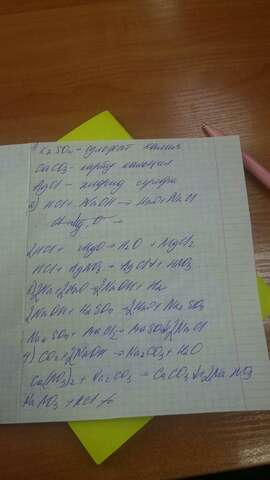 K2SO4 - сульфат калия
CaCO3 - карбонат кальция
AgCl - хлорид серебра
HCl + NaOH → H2O + NaCl
2HCl + MgO → H2O + MgCl2
HCl + AgNO3 → AgCl↓ + HNO3
2Na + 2H2O → 2NaOH + H2
2NaOH + H2SO4 → 2H2O + Na2SO4
Na2SO4 + BaCl2 → BaSO4↓ + 2NaCl
4) CO2 + 2NaOH → Na2CO3 + H2O
Ca(NO3)2 + Na2CO3 → CaCO3↓ + 2NaNO3
NaNO3 + HCl